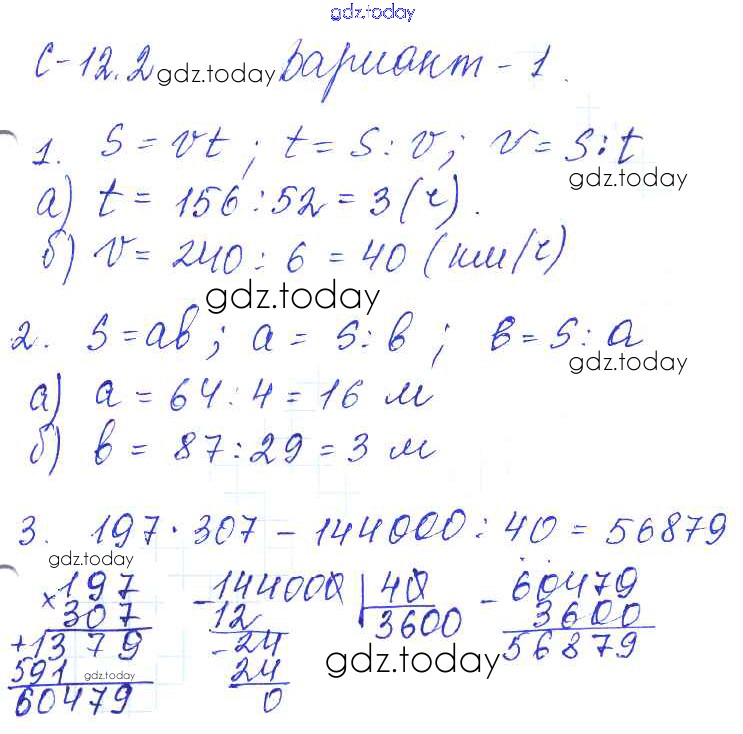 gdz.today
С-12.2 gdz.today Вариант - 1.
1. S = vt ; t = S : v ; v = S : t
gdz.today
а) t = 156 : 52 = 3 (ч).
б) v = 240 : 6 = 40 (км/ч)
gdz.today
2. S = ab ; a = S : b ; b = S : a
gdz.today
а) a = 64 : 4 = 16 м
б) b = 87 : 29 = 3 м
3. 197 · 307 - 144000 : 40 = 56879
gdz.today
× 197 - 144000 | 40 - 60479
307 12 3600 3600
+ 1379 - 24 56879
591 gdz.today 24 gdz.today
60479 0